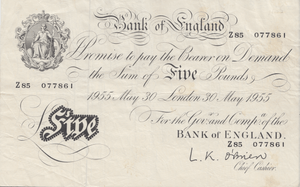 Bank of England
Z85 077861
Promise to pay the Bearer on Demand
Z85 077861
the Sum of Five Pounds
1955 May 30 London 30 May 1955
For the Govr and Compa of the
BANK OF ENGLAND.
Five
Z85 077861
L. K. O'Brien
Chief Cashier.